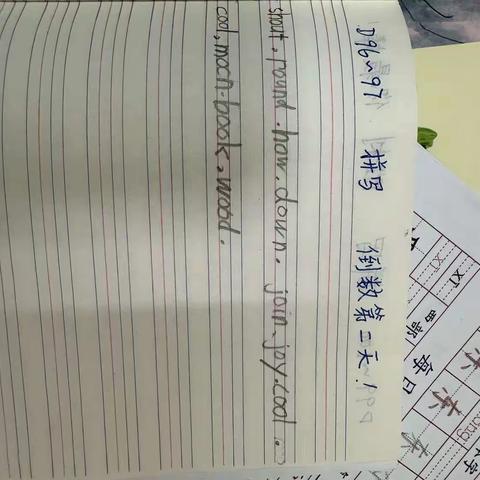 P96~97 拼写 倒数第二天!
shout. round. how. down. join. joy. cool.
cool, moon. book. wood.
西部
每日